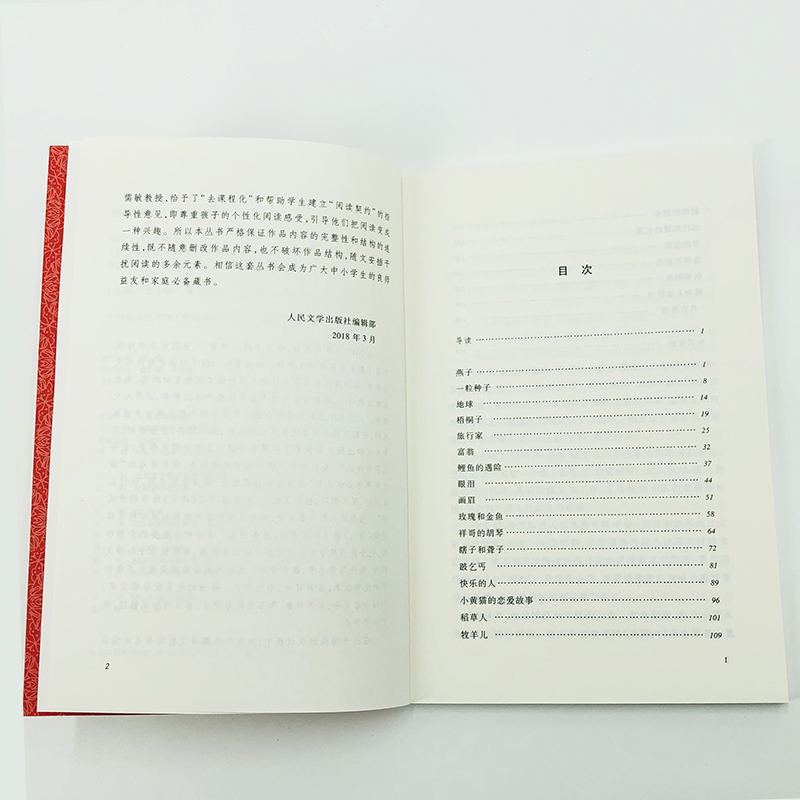 儒敏教授，给予了“去课程化”和帮助学生建立“阅读契约”的指
导性意见，即尊重孩子的个性化阅读感受，引导他们把阅读变成
一种兴趣。所以本丛书严格保证作品内容的完整性和结构的连
续性，既不随意删改作品内容，也不破坏作品结构，随文安插干
扰阅读的多余元素。相信这套丛书会成为广大中小学生的良师
益友和家庭必备藏书。
人民文学出版社编辑部
2018 年 3 月
2
目 次
导读 1
燕子 1
一粒种子 8
地球 14
梧桐子 19
旅行家 25
富翁 32
鲤鱼的遇险 37
眼泪 44
画眉 51
玫瑰和金鱼 58
祥哥的胡琴 64
瞎子和聋子 72
跛乞丐 81
快乐的人 89
小黄猫的恋爱故事 96
稻草人 101
牧羊儿 109
1